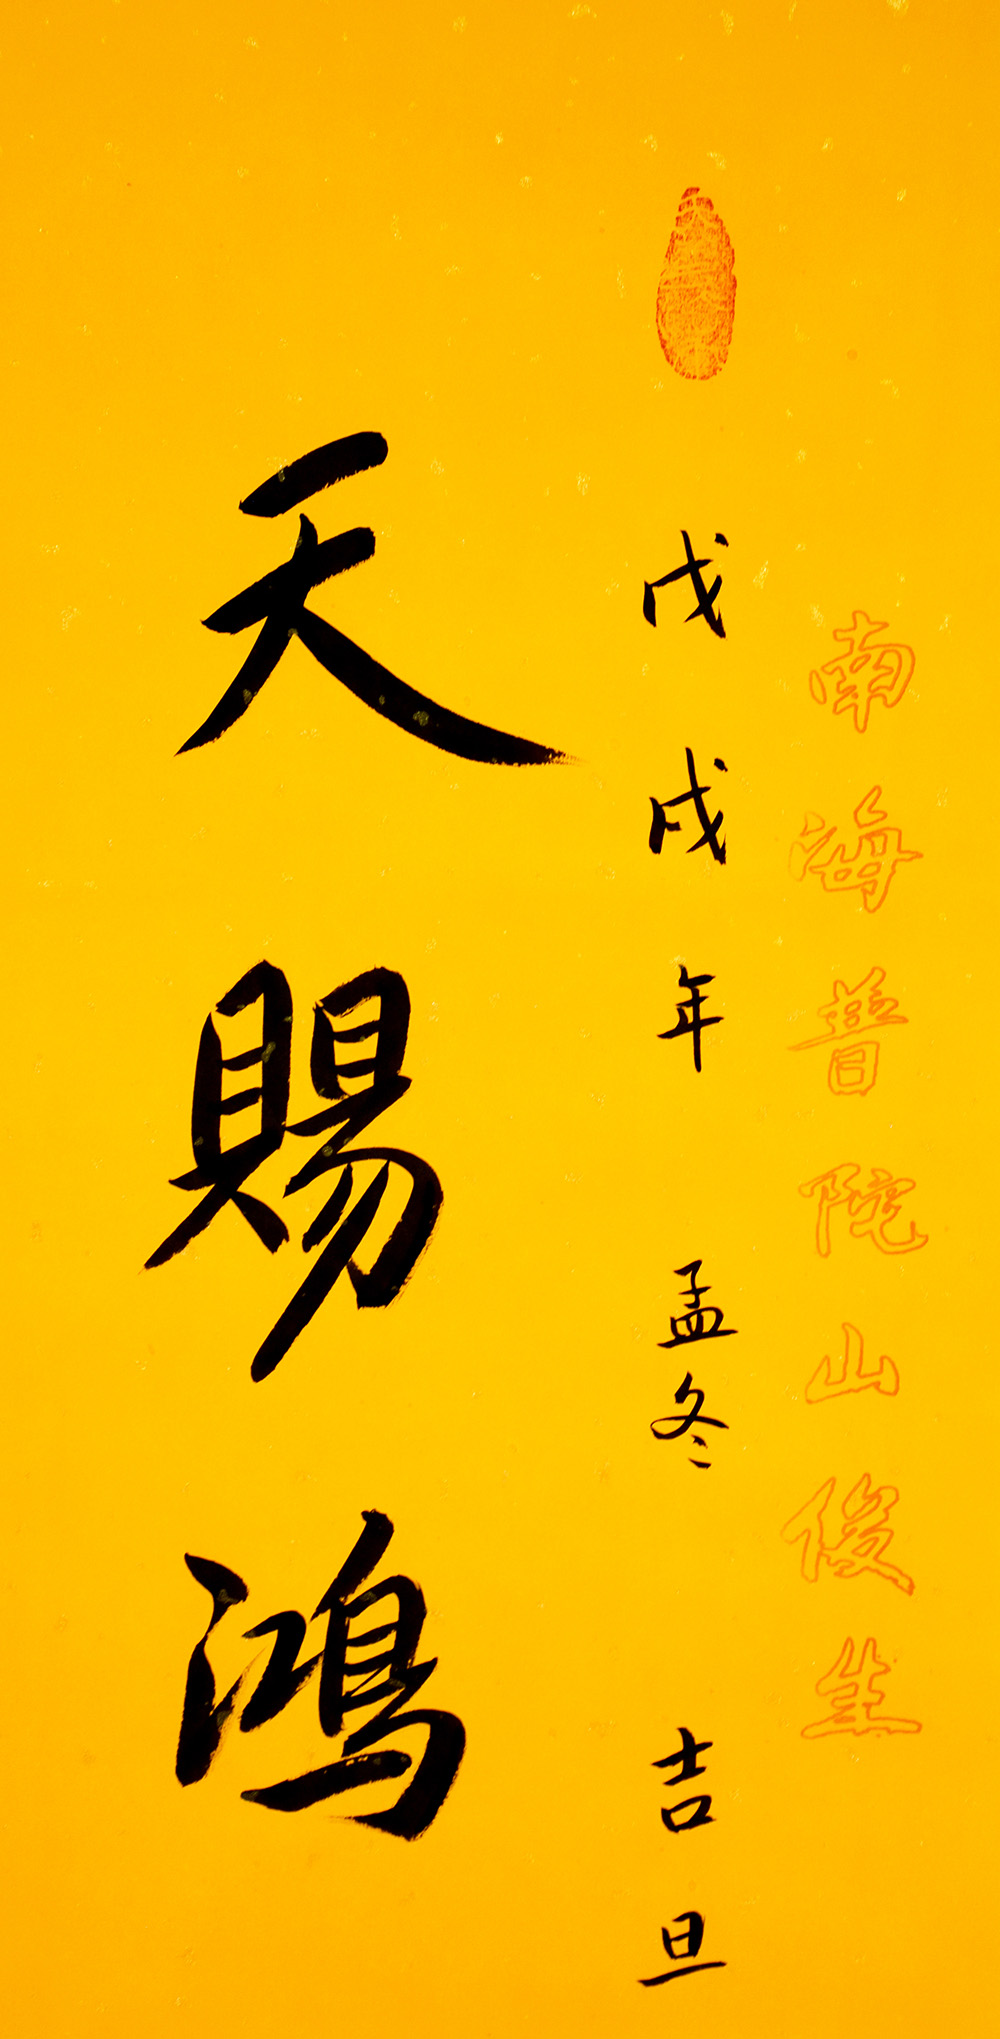 南海普陀山俊生
戊戌年 孟冬 吉旦
天賜鴻